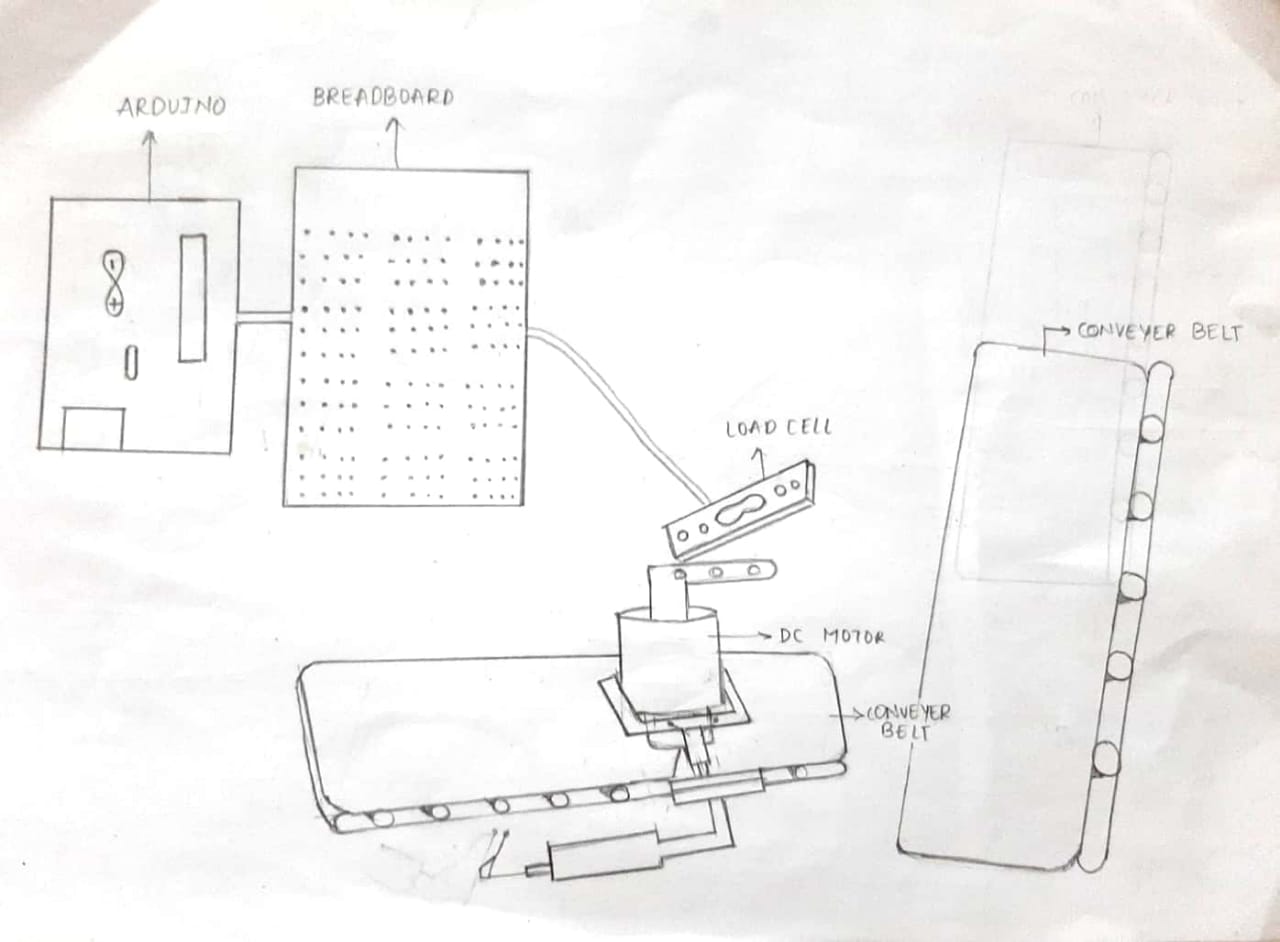 ARDUINO
BREADBOARD
CONVEYER BELT
LOAD CELL
DC MOTOR
CONVEYER
BELT